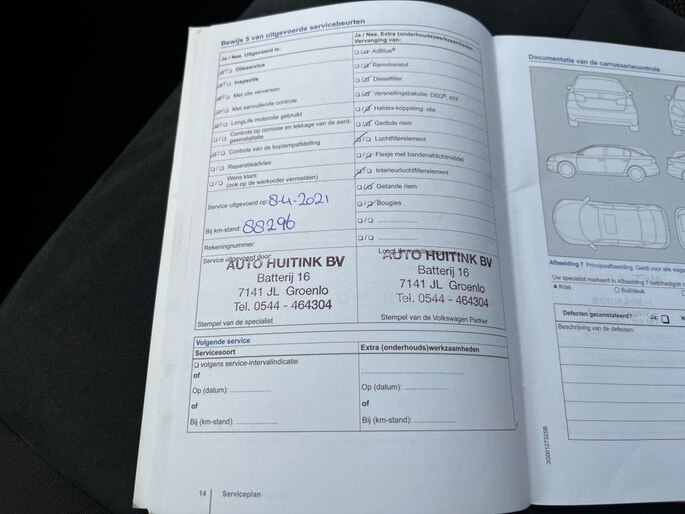 Bewijs 5 van uitgevoerde servicebeurten
Ja / Nee, Uitgevoerd is:
Olieservice
Inspectie
Met olie verversen
Met aanvullende controle
LongLife motorolie gebruikt
Controle op corrosie en lekkage van de aard-
gasinstallatie
Controle van de koplampafstelling
Reparatieadvies
Wens klant
(ook op de werkorder vermelden)
Service uitgevoerd op: 8-4-2021
Bij km-stand: 88296
Rekeningnummer:
Service uitgevoerd door:
AUTO HUITINK BV
Batterij 16
7141 JL Groenlo
Tel. 0544 - 464304
Stempel van de specialist
Ja / Nee, Extra (onderhouds)werkzaamheden
Vervanging van:
AdBlue®
Remvloeistof
Dieselfilter
Versnellingsbakolie: DSG®, ATF
Haldex-koppeling: olie
Geribde riem
Luchtfilterelement
Flesje met bandenafdichtmiddel
Interieurluchtfilterelement
Getande riem
Bougies
AUTO HUITINK BV
Batterij 16
7141 JL Groenlo
Tel. 0544 - 464304
Stempel van de Volkswagen Partner
Volgende service
Servicesoort
Extra (onderhouds)werkzaamheden
volgens service-intervalindicatie
of
Op (datum): ....................
of
Bij (km-stand): ....................
Op (datum): ....................
of
Bij (km-stand): ....................
14 Serviceplan
Documentatie van de carrosseriecontrole
Afbeelding 7 Principeafbeelding. Geldt voor alle
Uw specialist markeert in Afbeelding 7
Kras
Buil/deuk
Defecten geconstateerd? Ja:
Beschrijving van de defecten: